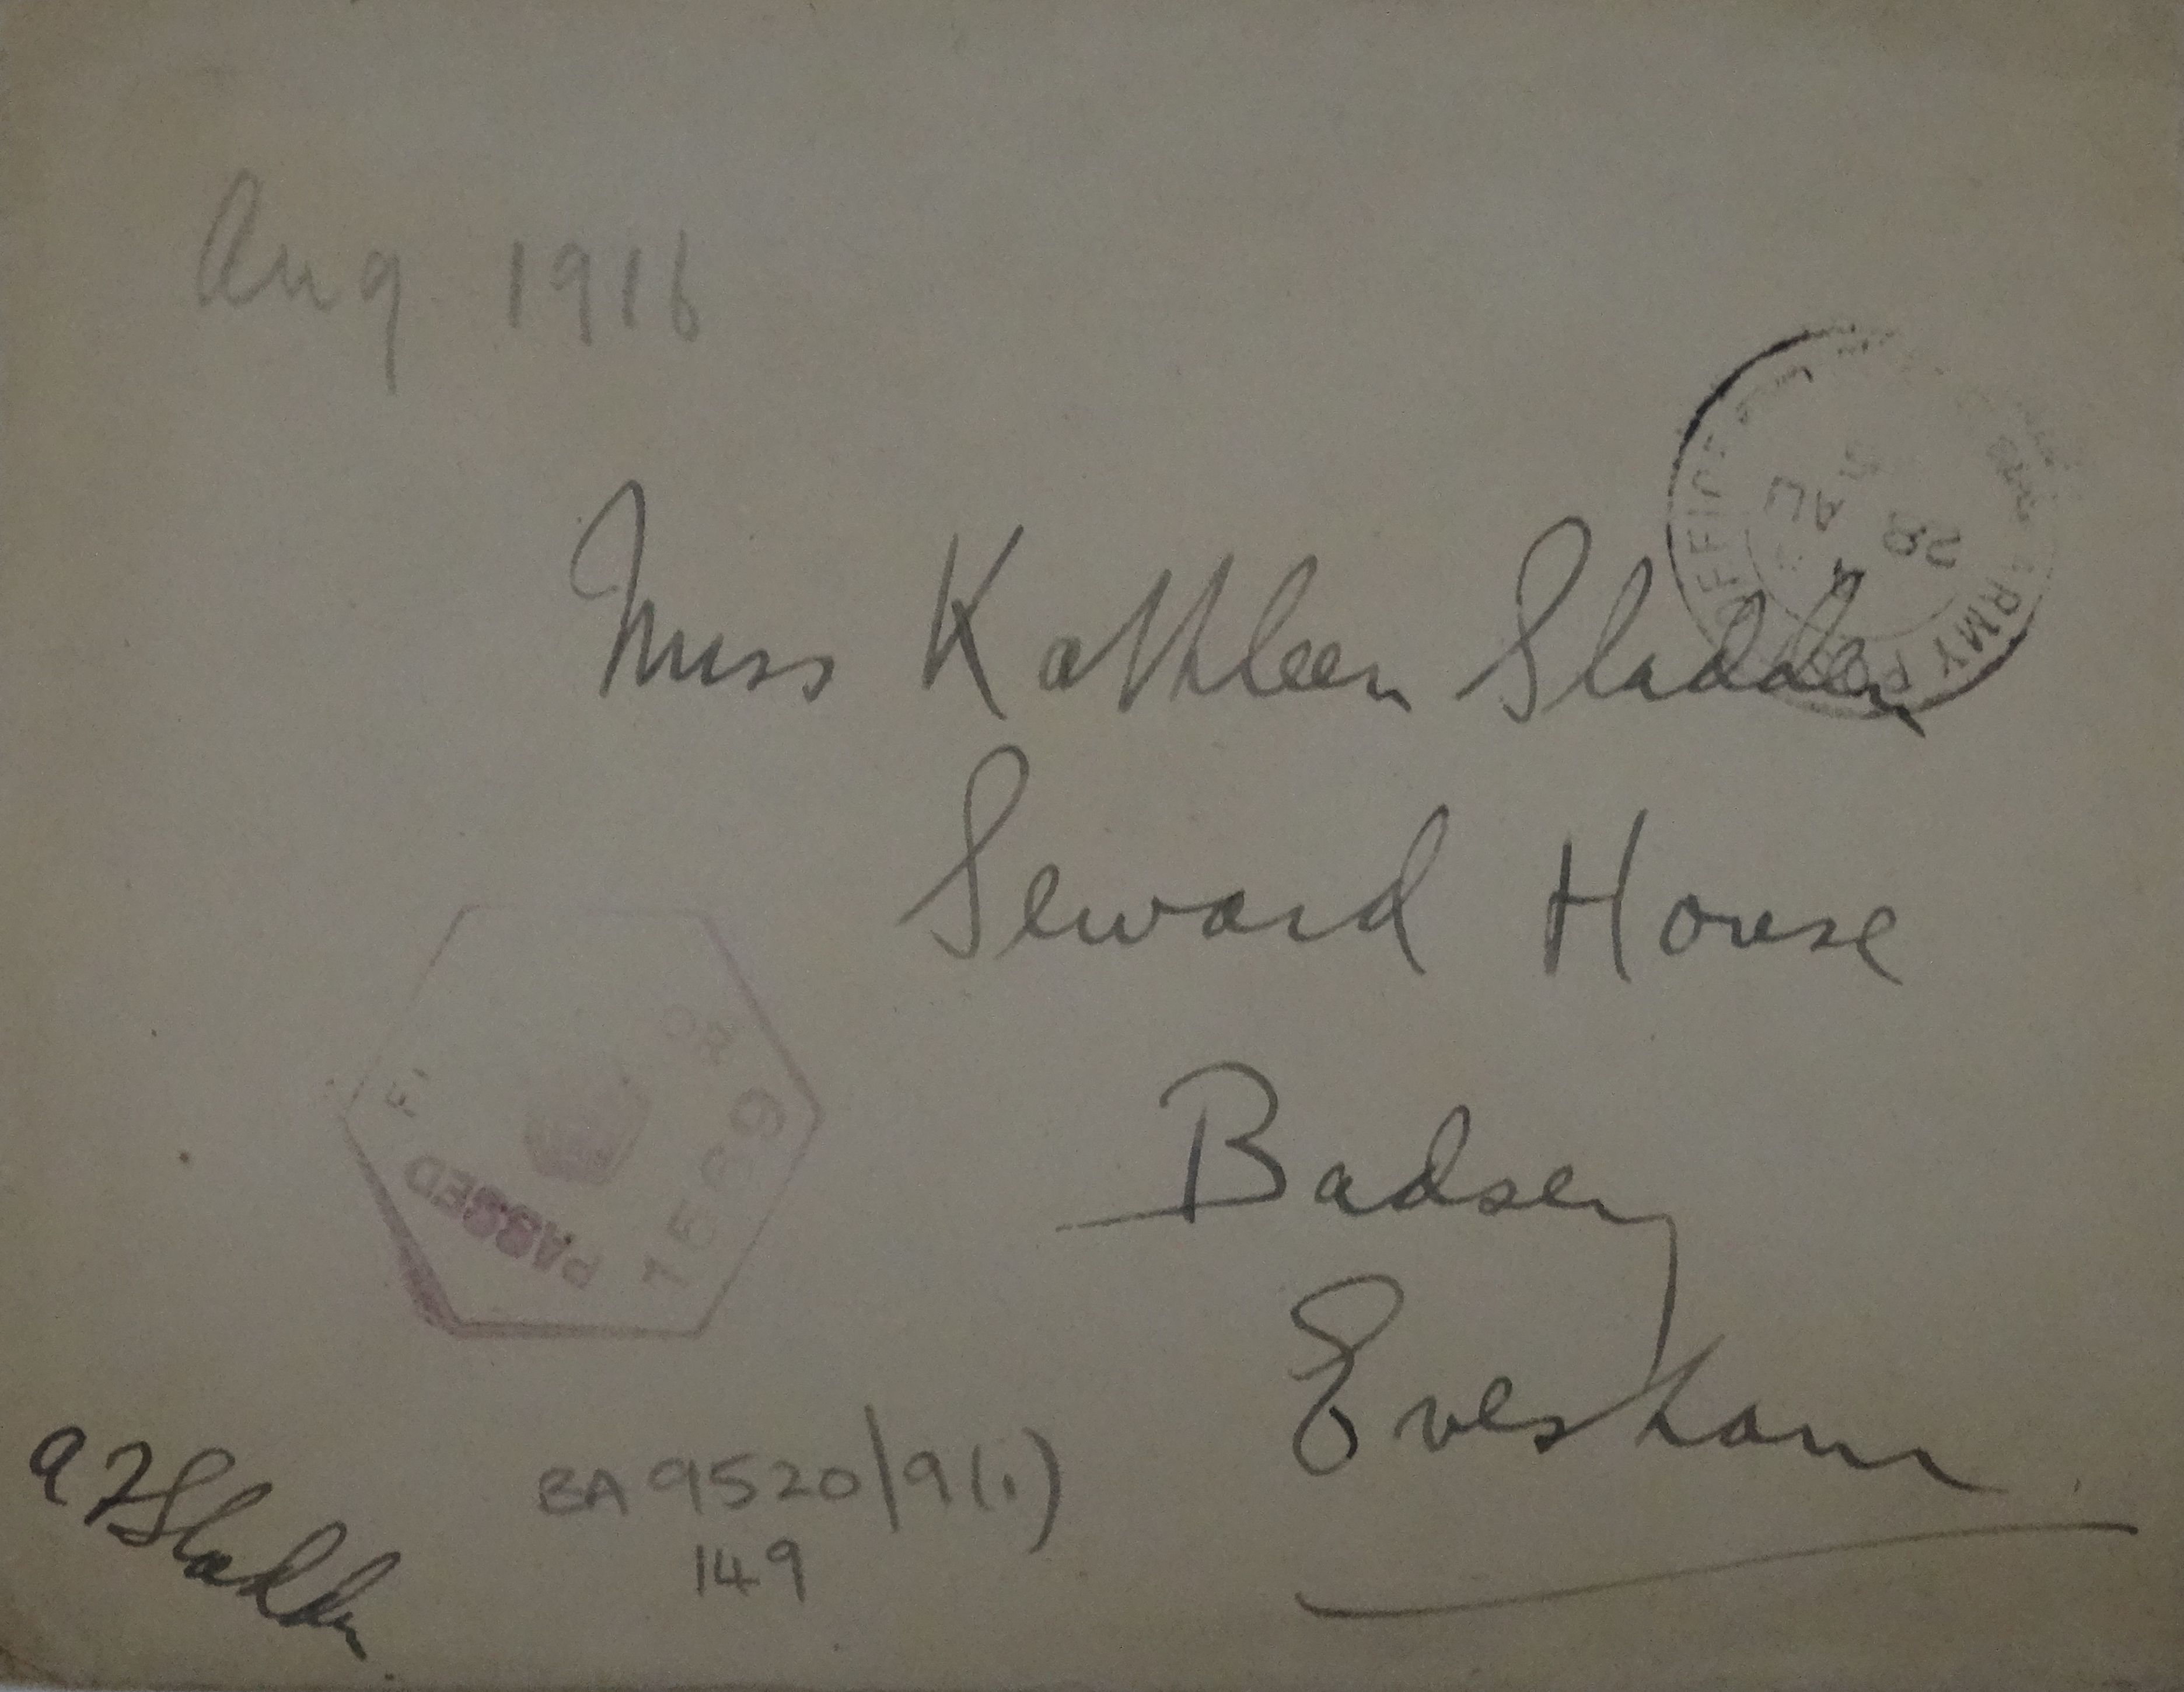 Aug 1916
ARMY P OFFICE
28 AU
Miss Kathleen Sladden
Seward House
Badsey
Evesham
PASSED
1569
A F Sladden
BA 9520/9(i)
149